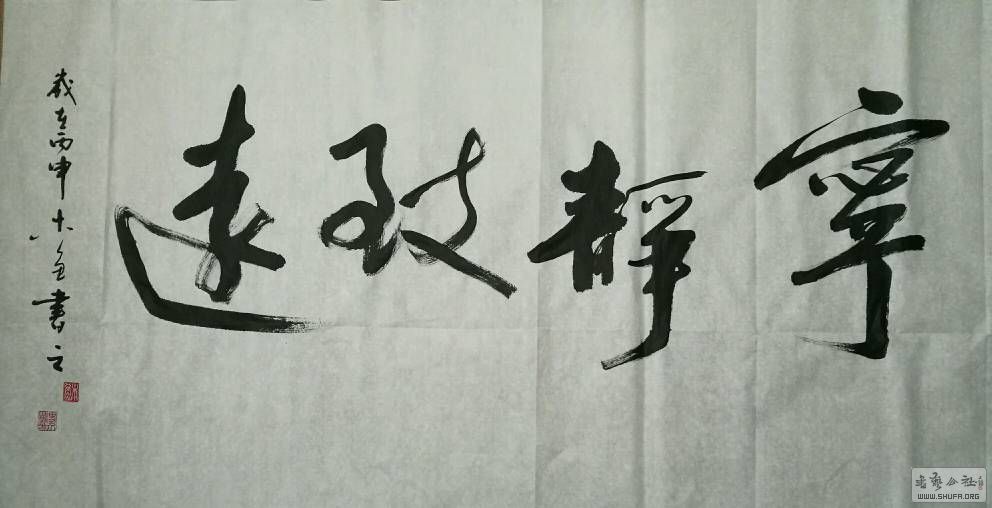 寧靜致遠
歲在丙申
書之
書藝公社
WWW.SHUFA.ORG